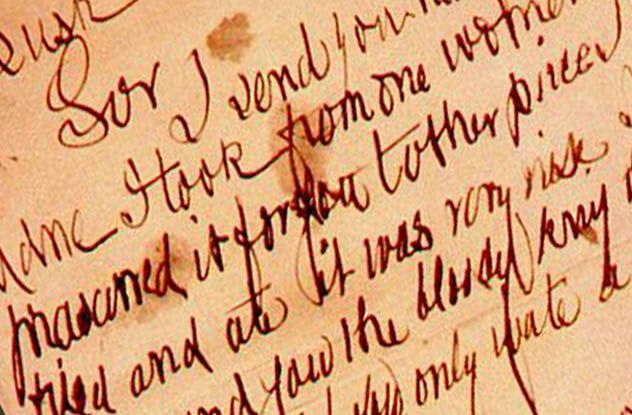 Lusk
Sor I send you
idne I took from one women
prasarved it for you tother piece
fried and ate it was very nise
end you the bloody knif
you only wate a